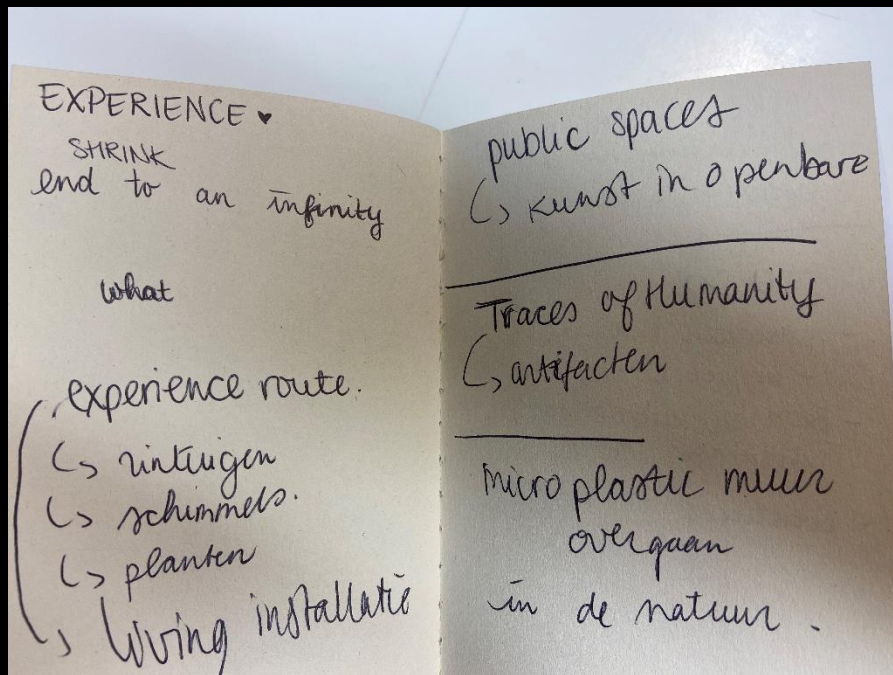 EXPERIENCE ♥
SHRINK
end to an infinity
what
experience route.
↳ zintuigen
↳ schimmels.
↳ planten
↳ living installatie
public spaces
↳ kunst in openbare
Traces of Humanity
↳ artifacten
micro plastic muur
overgaan
in de natuur.